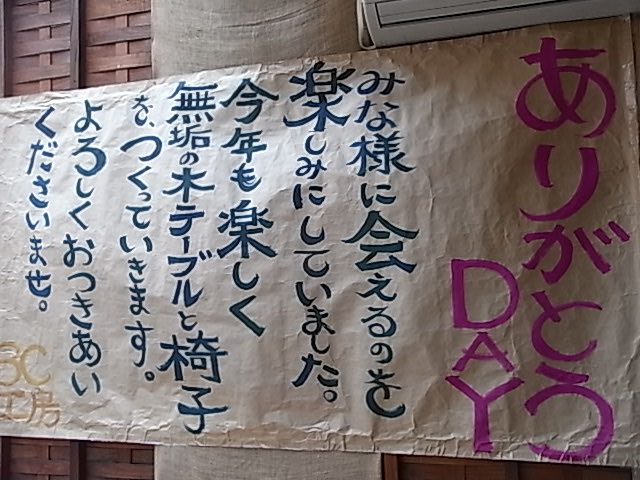 ありがとう
DAY
みな様に会えるのを
楽しみにしていました。
今年も楽しく
無垢の木テーブルと椅子
を、つくっていきます。
よろしくおつきあい
くださいませ。
SC
工房